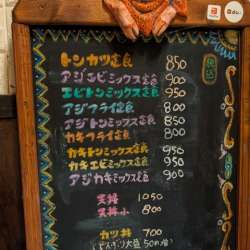 トンカツ定食 850
アジエビミックス定食 900
エビトンミックス定食 950
アジフライ定食 850
アジトンミックス定食 900
カキフライ定食 800
カキトンミックス定食 950
カキエビミックス定食 950
アジカキミックス定食 900
天丼 1050
天丼小 800
カツ丼 700
大盛 50円増
税込